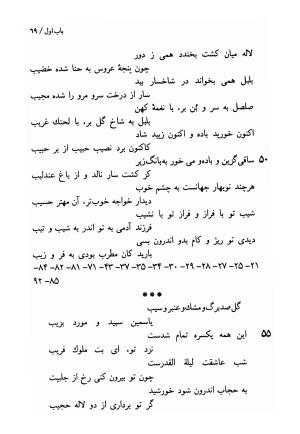 باب اول / ۶۹
لاله میان کشت بخندد همی ز دور
چون پنجهٔ عروس به حنا شده خضیب
بلبل همی بخواند در شاخسار بید
سار از درخت سرو مرو را شده مجیب
صلصل به سر و بُن بر، با نغمهٔ کهن
بلبل به شاخ گل بر، با لحنک غریب
اکنون خورید باده و اکنون زیید شاد
کاکنون برد نصیب حبیب از بر حبیب
۵۰ ساقی‌گزین و باده‌و می خور به‌بانگ‌زیر
کز کشت سار نالد و از باغ عندلیب
هرچند نوبهار جهانست به چشم خوب
دیدار خواجه خوب‌تر، آن مهتر حسیب
شیب تو با فراز و فراز تو با نشیب
فرزند آدمی به تو اندر به شیب و تیب
دیدی تو ریژ و کام بدو اندرون بسی
بارید کان مطرب بودی به فر و زیب
۲۱- ۲۵- ۲۷- ۲۸- ۲۹- ۳۰- ۳۴- ۳۷- ۳۵- ۴۳- ۷۱- ۸۱- ۸۲- ۸۴-
۸۵- ۹۲
***
گل‌صدبرگ‌و‌مشک‌و‌عنبر‌و‌سیب
یاسمین سپید و مورد بزیب
۵۵ این همه یکسره تمام شدست
نزد تو، ای بت ملوک فریب
شب عاشقت لیلة القدرست
چون تو بیرون کنی رخ از جلبیب
به حجاب اندرون شود خورشید
گر تو برداری از دو لاله حجیب